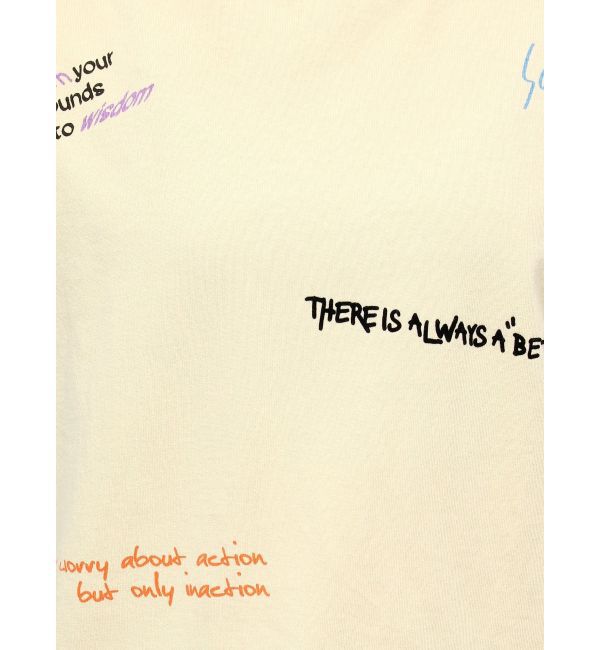 your
to wisdom
THERE IS ALWAYS A "
worry about action
but only inaction